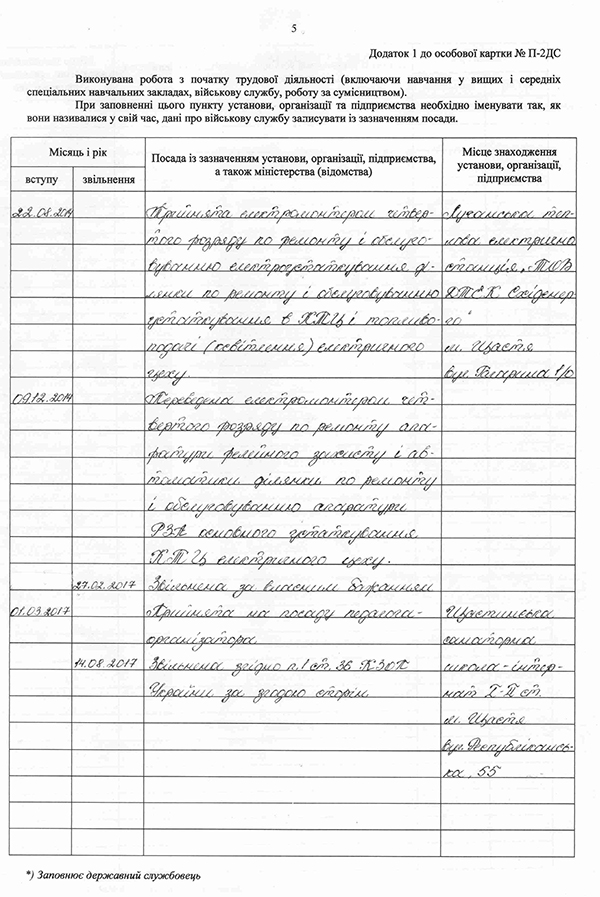 5
Додаток 1 до особової картки № П-2ДС
Виконувана робота з початку трудової діяльності (включаючи навчання у вищих і середніх
спеціальних навчальних закладах, військову службу, роботу за сумісництвом).
При заповненні цього пункту установи, організації та підприємства необхідно іменувати так, як
вони називалися у свій час, дані про військову службу записувати із зазначенням посади.
Місяць і рік
вступу
звільнення
Посада із зазначенням установи, організації, підприємства,
а також міністерства (відомства)
Місце знаходження
установи, організації,
підприємства
22.08.2014 Прийнята електромонтером четвер- Луганська теп-
того розряду по ремонту і обслуго- лова електрична
вуванню електроустаткування ді- станція, ТОВ
лянки по ремонту і обслуговуванню ДТЕК Східенер-
устаткування в КТЦ і топливо- го"
подачі (освітлення) електричного м. Щастя
цеху. вул. Гагаріна 1/о
09.12.2014 Переведена електромонтером чет-
вертого розряду по ремонту апа-
ратури релейного захисту і ав-
томатики ділянки по ремонту
і обслуговуванню апаратури
РЗА основного устаткування
КТЦ електричного цеху.
27.02.2017 Звільнена за власним бажанням
01.03.2017 Прийнята на посаду педагога- Щастинська
організатора санаторна
14.08.2017 Звільнена згідно п.1 ст. 36 КЗпП школа-інтер-
України за згодою сторін нат I-II ст.
м. Щастя
вул. Республікансь-
ка, 55
*) Заповнює державний службовець